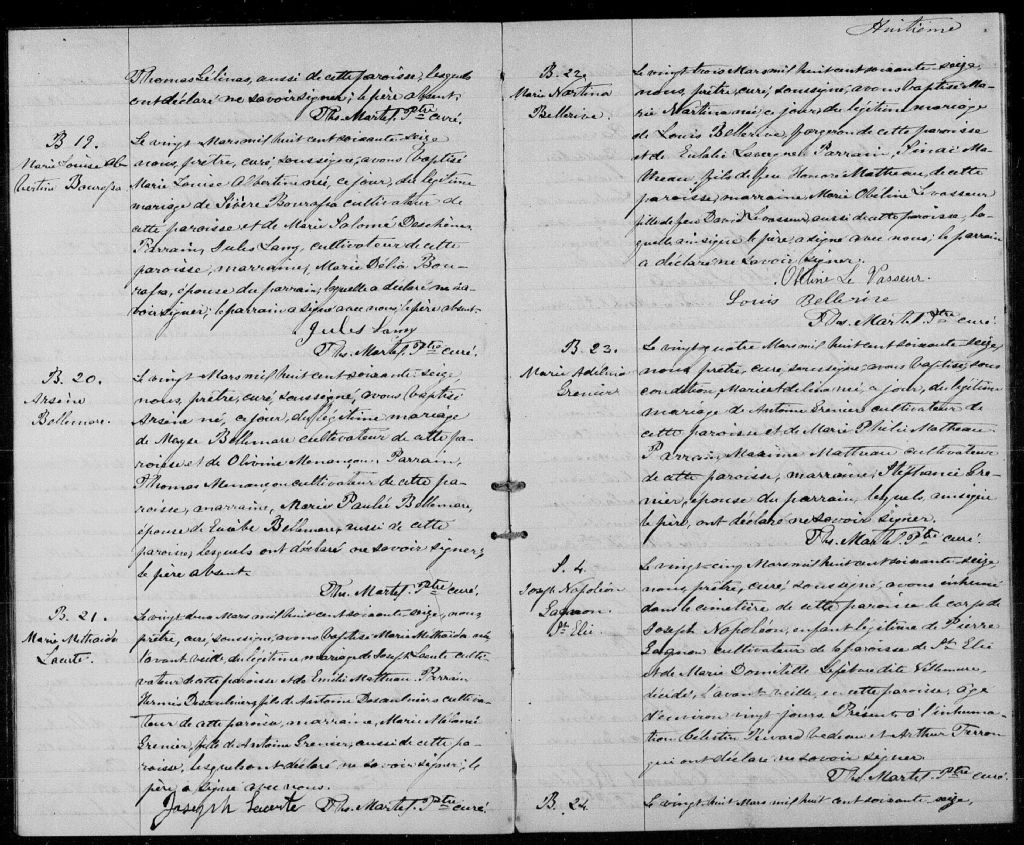 Thomas Gélinas, aussi de cette paroisse, lesquels
ont déclaré ne savoir signer; le père absent.
Ths. Martel. Ptre curé.
B 19.
Marie Louise Al-
bertine Bourassa
Le vingt Mars mil huit cent soixante seize
nous, prêtre, curé soussigné, avons baptisé
Marie Louise Albertine née, ce jour, du légitime
mariage de Sévère Bourassa cultivateur de
cette paroisse et de Marie Salomé Deschênes
Parrain, Jules Lamy, cultivateur de cette
paroisse, marraine, Marie Délia Bou-
rassa, épouse du parrain, laquelle a déclaré ne sa-
voir signer; le parrain a signé avec nous; le père absent.
Jules Lamy
Ths. Martel. Ptre curé.
B. 20.
Arsène
Bellemare.
Le vingt Mars mil huit cent soixante seize,
nous, prêtre, curé, soussigné, avons baptisé
Arsène né, ce jour, du légitime mariage
de Moyse Bellemare cultivateur de cette pa-
roisse et de Olivine Menançon. Parrain,
Thomas Menançon cultivateur de cette pa-
roisse, marraine, Marie Paulée Bellemare,
épouse de Eusèbe Bellemare, aussi de cette
paroisse, lesquels ont déclaré ne savoir signer;
le père absent.
Ths. Martel. Ptre curé.
B. 21.
Marie Mathaïde
Lacerte.
Le vingt deux Mars mil huit cent soixante seize, nous,
prêtre, curé, soussigné, avons baptisé Marie Mathaïda née
l'avant veille, du légitime mariage de Joseph Lacerte culti-
vateur de cette paroisse et de Emélie Matteau. Parrain
Hermès Desaulniers, fils de Antoine Desaulniers cultiva-
teur de cette paroisse, marraine, Marie Mélanie
Grenier, fille de Antoine Grenier, aussi de cette pa-
roisse, lesquels ont déclaré ne savoir signer; le
père a signé avec nous.
Joseph Lacerte Ths. Martel. Ptre curé.
Huitième
B. 22.
Marie Martina
Bellerive.
Le vingt trois Mars mil huit cent soixante seize,
nous, prêtre, curé, soussigné, avons baptisé Ma-
rie Martina née, ce jour, du légitime mariage
de Louis Bellerive, forgeron de cette paroisse
et de Eulalie Lavergne. Parrain, Sinaï Ma-
theau, fils de feu Honoré Matheau, de cette
paroisse, marraine Marie Obéline Levasseur
fille de feu David Levasseur, aussi de cette paroisse, la-
quelle ainsi que le père, a signé avec nous; le parrain
a déclaré ne savoir signer.
Obéline Le Vasseur.
Louis Bellerive
Ths. Martel. Ptre curé.
B. 23.
Marie Adélina
Grenier
Le vingt quatre Mars mil huit cent soixante seize,
nous, prêtre, curé, soussigné, avons baptisé, sous
condition, Marie Adelina née, ce jour, du légitime
mariage de Antoine Grenier cultivateur de
cette paroisse et de Marie Philie Matheau.
Parrain, Maxime Matteau cultivateur
de cette paroisse, marraine, Stéphanie Gre-
nier, épouse du parrain, lesquels, ainsi que
le père, ont déclaré ne savoir signer.
Ths. Martel. Ptre curé.
S. 4.
Joseph Napoléon
Gagnon
St Elie
Le vingt-cinq Mars mil huit cent soixante seize
nous prêtre, curé soussigné, avons inhumé
dans le cimetière de cette paroisse le corps de
Joseph Napoléon, enfant légitime de Pierre
Gagnon cultivateur de la paroisse de St Elie
et de Marie Domitille Lefebvre dite Villemure,
décédé, l'avant veille, en cette paroisse, âgé
d'environ vingt jours. Présents à l'inhuma-
tion Célestin Rivard Bedieau et Arthur Ferron
qui ont déclaré ne savoir signer
Ths. Martel. Ptre curé.
B. 24.
Le vingt huit Mars mil huit cent soixante seize,